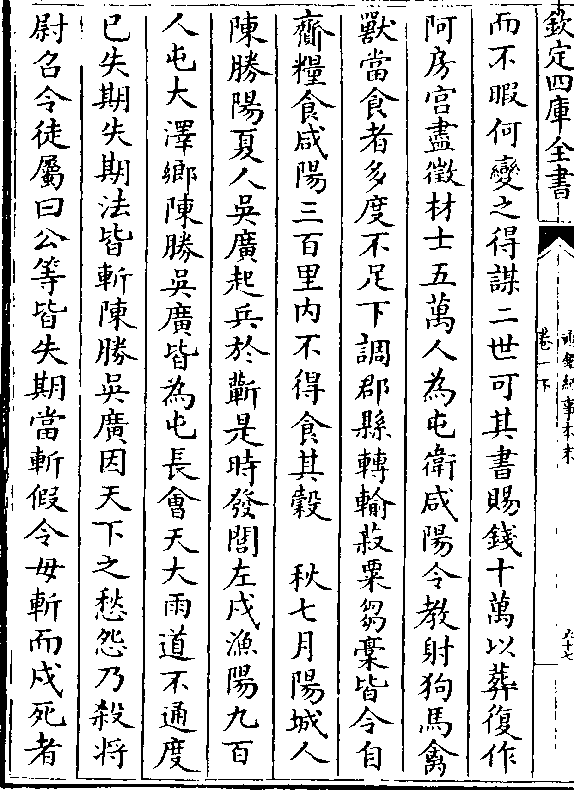 欽定四庫全書
通鑑紀事本末
卷一下
六十七
而不暇何變之得謀二世可其書賜錢十萬以葬復作
阿房宫盡徵材士五萬人為屯衛咸陽令教射狗馬禽
獸當食者多度不足下調郡縣轉輸菽粟芻稾皆令自
齎糧食咸陽三百里内不得食其穀　秋七月陽城人
陳勝陽夏人吳廣起兵於蘄是時發閭左戍漁陽九百
人屯大澤鄉陳勝吳廣皆為屯長會天大雨道不通度
已失期失期法皆斬陳勝吳廣因天下之愁怨乃殺將
尉召令徒屬曰公等皆失期當斬假令毋斬而戍死者